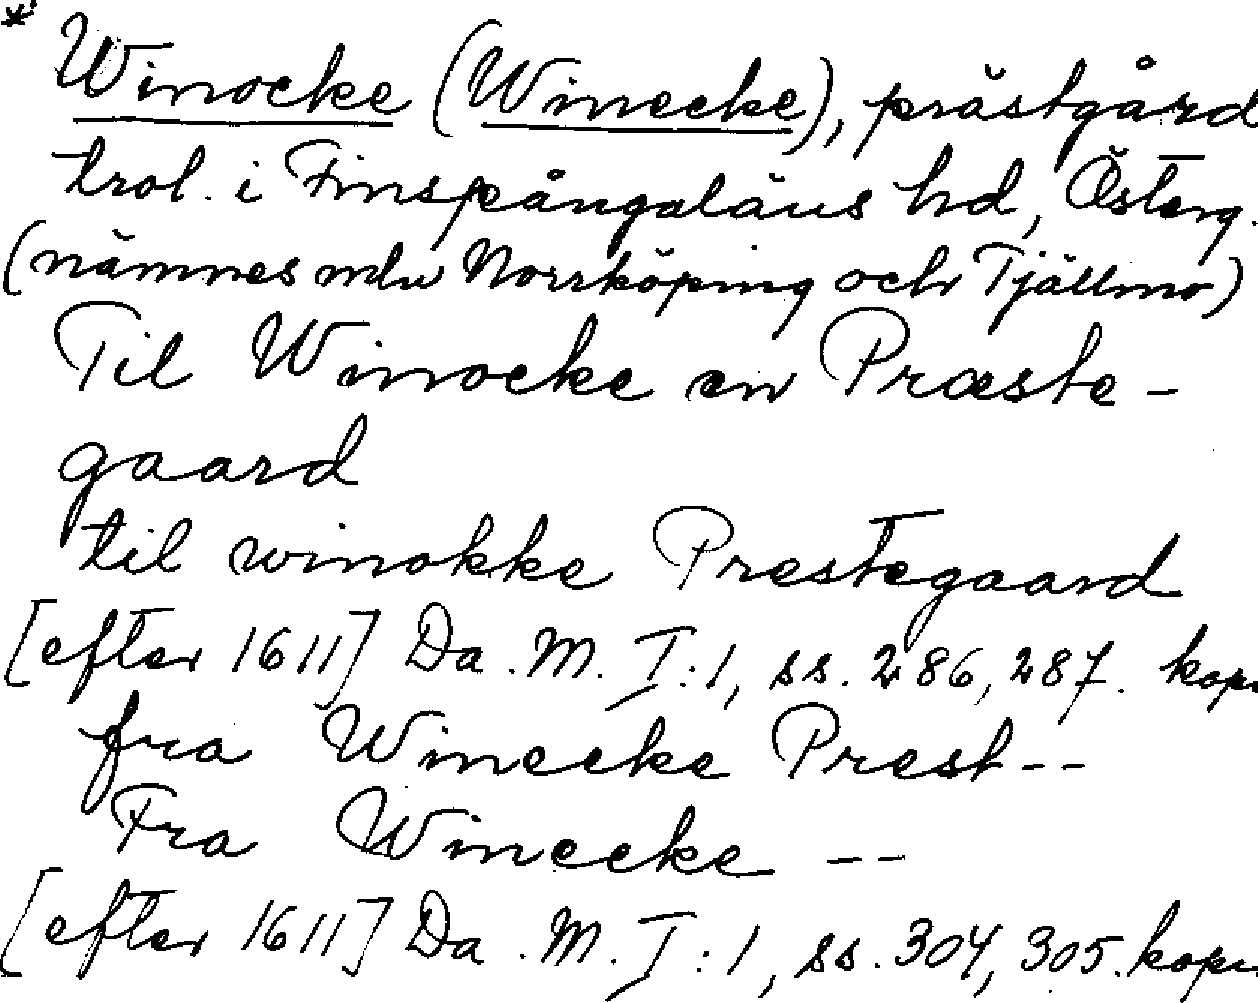 * Winocke (Winecke), prästgård
trol. i Finspångaläns hd, Österg.
(nämnes mln Norrköping och Tjällmo)
Til Winocke en Præste-
gaard
til winokke Prestegaard
[efter 1611] Da. M. I:1, ss. 286, 287. kopi
fra Winecke Prest--
Fra Winecke --
[efter 1611] Da. M. I:1, ss. 304, 305. kopi